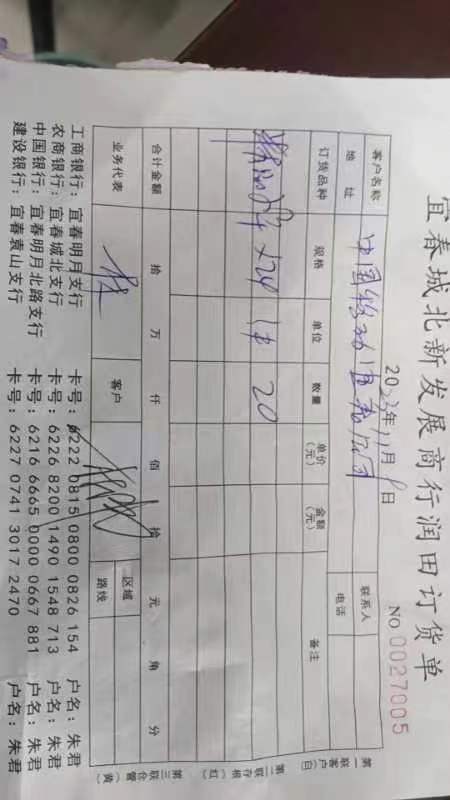 宜春城北新发展商行润田订货单
2023年11月9日 NO.0027005
客户名称 中国移动宜春公司 联系人
地址 电话
订货品种 规格 单位 数量 单价(元) 金额(元) 备注
×24 件 20
合计金额 拾 万 仟 佰 拾 元 角 分
业务代表 客户 区域路线
工商银行:宜春明月支行 卡号:6222 0815 0800 0826 154 户名:朱君
农商银行:宜春城北支行 卡号:6226 8200 1490 1548 713 户名:朱君
中国银行:宜春明月北路支行 卡号:6216 6665 0000 0667 881 户名:朱君
建设银行:宜春袁山支行 卡号:6227 0741 3017 2470 户名:朱君
第一联客户(白)
第二联存根(红)
第三联仓管(黄)